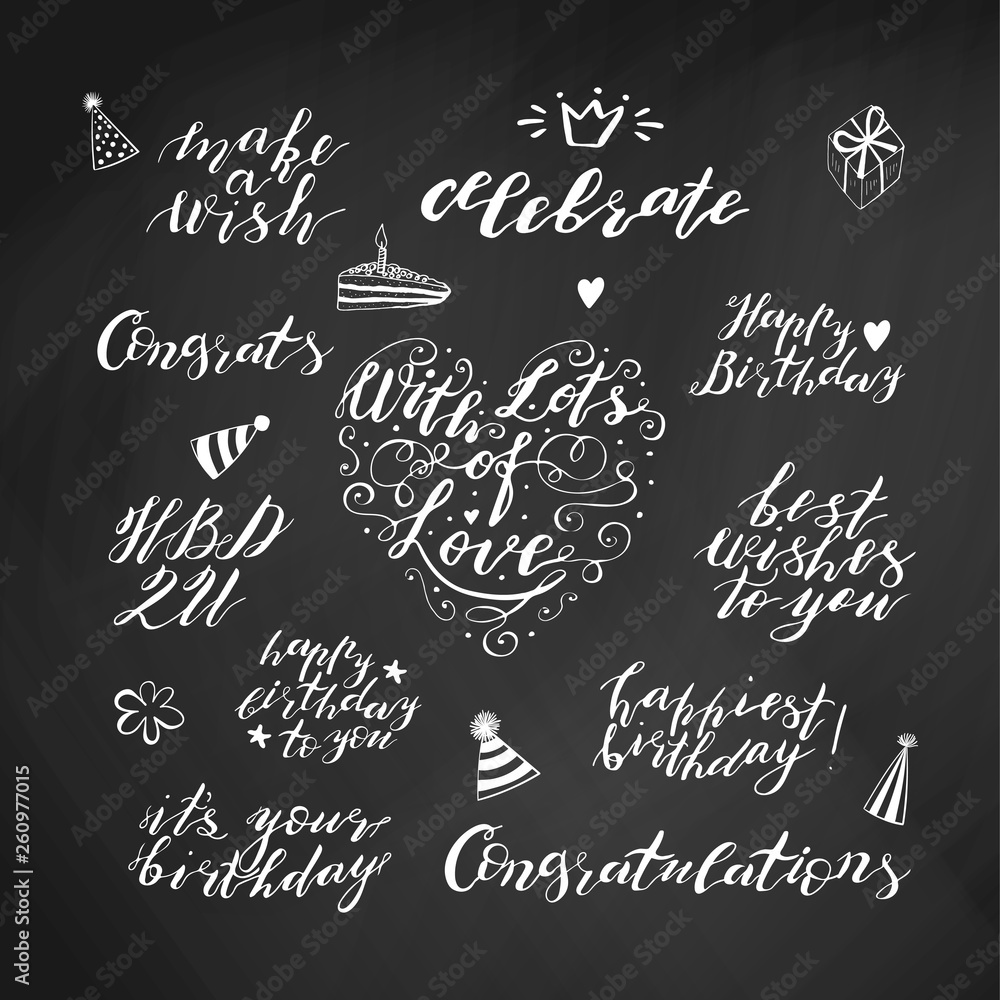 make
a
wish
celebrate
Congrats
Happy
Birthday
With Lots
of
Love
HBD
2U
best
wishes
to you
happy
birthday
to you
happiest
birthday!
it's your
birthday
Congratulations
Adobe Stock | #260977015